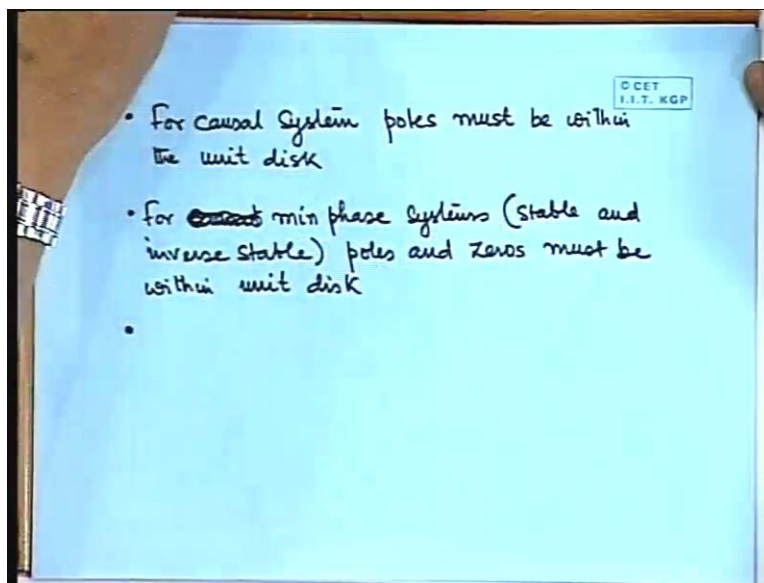 © CET
I.I.T. KGP
• For causal system poles must be within
the unit disk
• For min phase systems (stable and
inverse stable) poles and zeros must be
within unit disk
•